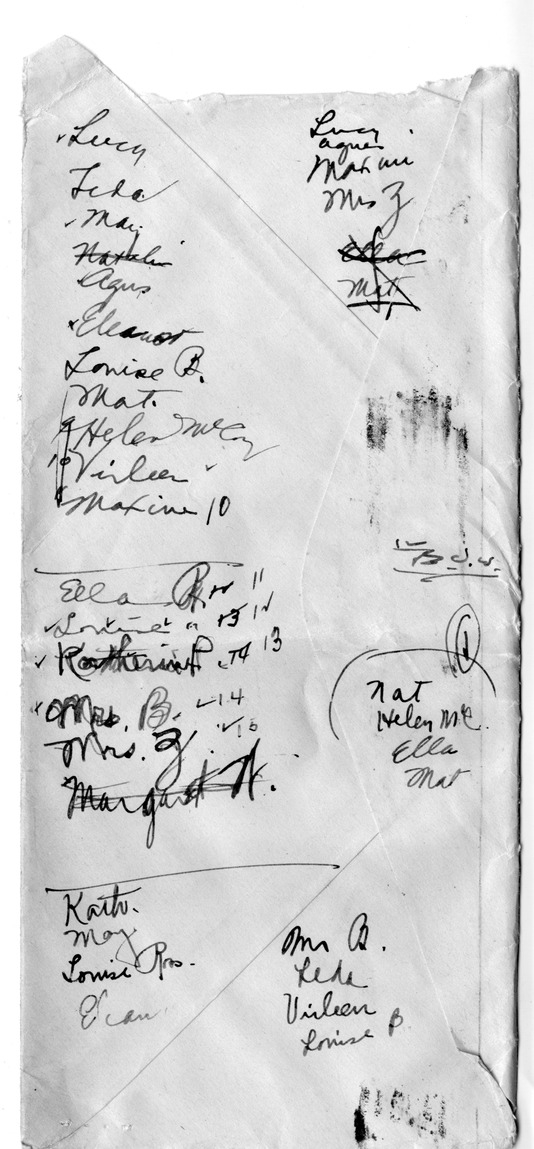 Lucy
Leda
May
Natalie
Agns
Eleanor
Louise B.
Mat.
Helen McCoy
Virleen
Maxine 10
Ella R 11
Louise " 13 12
Katherine P. 14 13
Mrs. B. 14
Mrs. Z.
Margaret H.
Kath.
May
Louise Ros.
Elean
Lucy
Agnes
Maxine
Mrs Z
Ella
Mat
Nat
Helen Mc.
Ella
Mat
Mrs B.
Leda
Virleen
Louise B